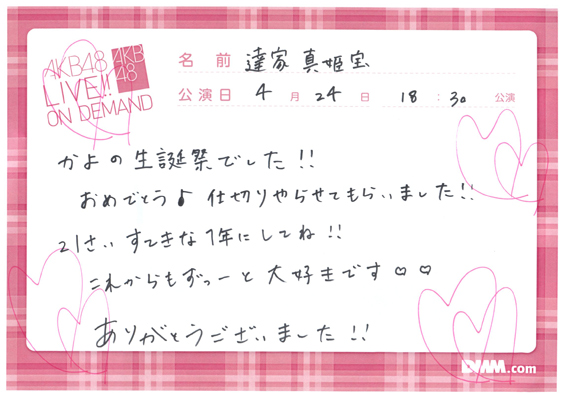 AKB48
LIVE!!
ON DEMAND
AKB
48
名前 達家 真姫宝
公演日 4月24日 18:30公演
かよの生誕祭でした!!
おめでとう♪ 仕切りやらせてもらいました!!
21さい すてきな1年にしてね!!
これからもずっーと大好きです♡♡
ありがとうございました!!
DMM.com